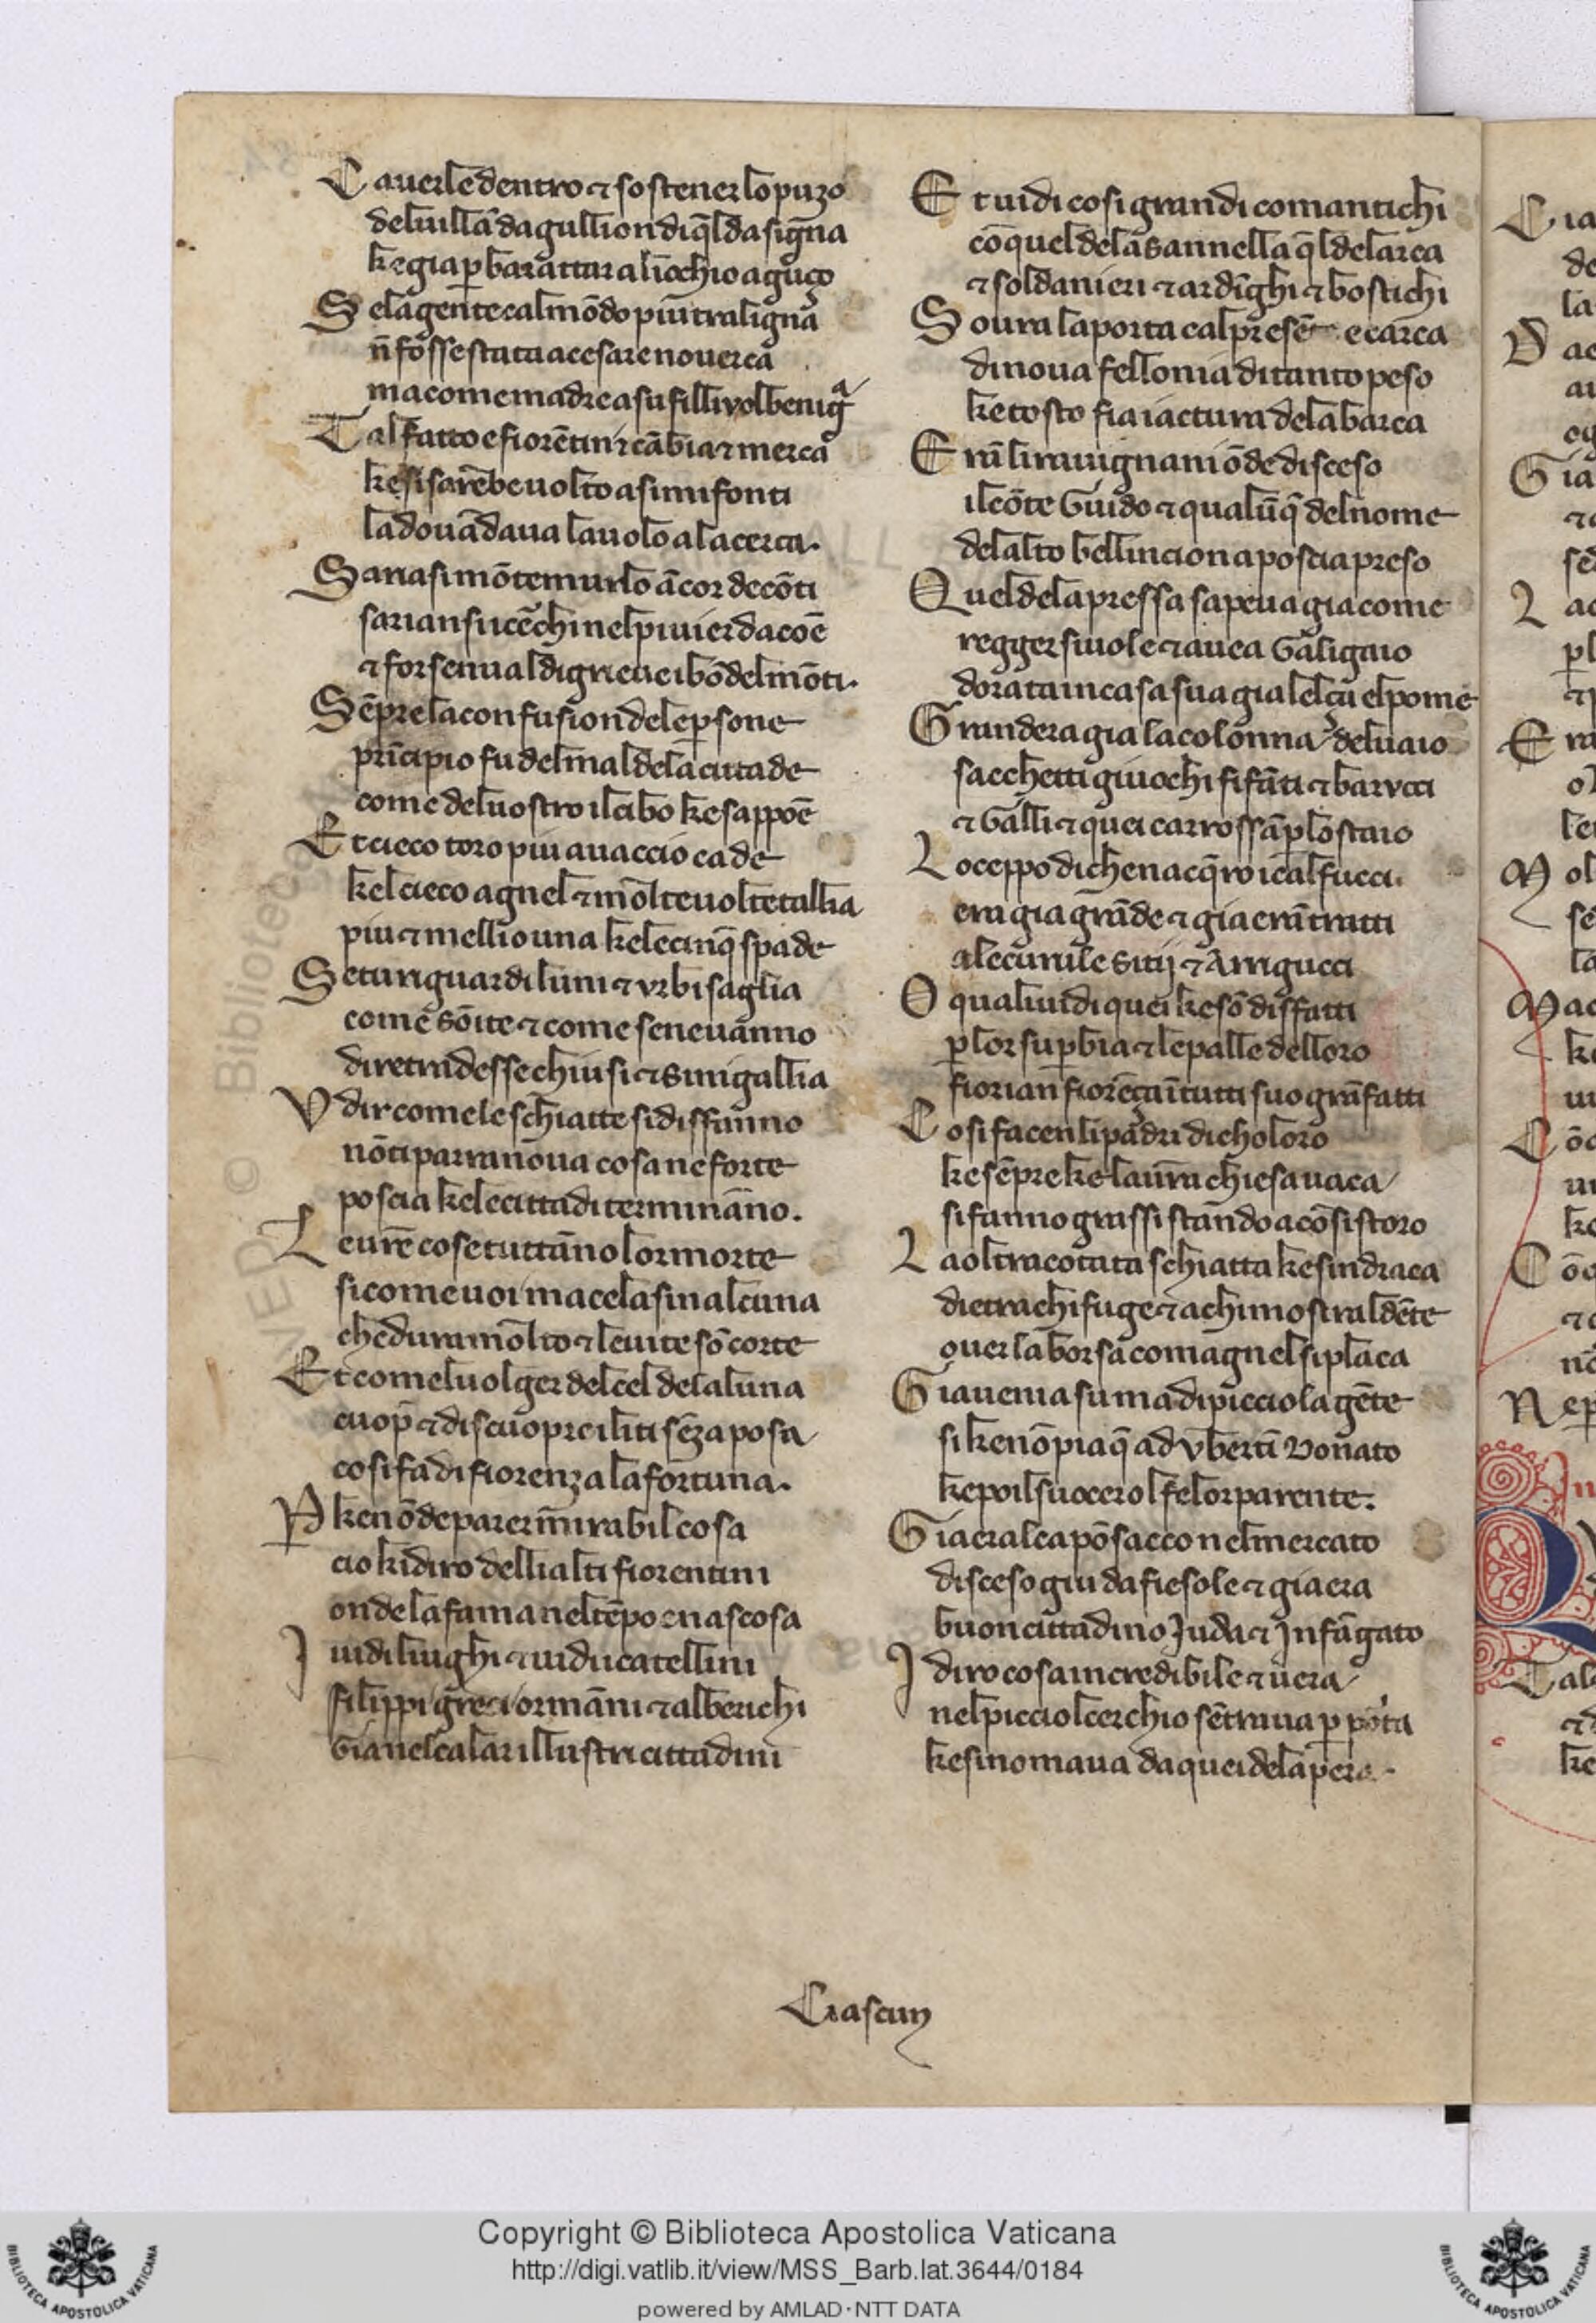 C auerle dentro ⁊ sostener lo puzo
del uillā dagullion di q̄l da sigña
ke gia ꝑ barattar a li ochio aguço
S e la gente cal mōdo piu traligna
n̄ fosse stata a cesare nouerca
ma come madre a su filli vol benigᵃ
T al fatto e fiorētin ⁊ cābia ⁊ merca
ke si sarebe uolto a simifonti
la dou ādaua lauolo a la cerca.
S ariasi mōtemurlo ācor de cōti
sarian si cērchi nel piuier dacoē
⁊ forse in ualdigrieue i bōdelmōti.
S ēpre la confusion de le ꝑsone
prīcipio fu del mal de la cittade
come del uostro il cibo ke sappoē
E t cieco toro piu auaccio cade
kel cieco agnel ⁊ mōlte uolte tallia
piu ⁊ mellio una ke le cinq̄ spade
S e tu riguardi luni ⁊ vrbisaglia
come sōite ⁊ come se ne uanno
diretro ad esse chiusi ⁊ sinigallia
V dir come le schiatte si disfanno
nō ti parra noua cosa ne forte
poscia ke le cittadi terminānno.
L e ur̄e cose tutt āno lor morte
si come uoi ma celasi nalcuna
che dura mōlto ⁊ le uite sō corte
E t comel uolger del cel de la luna
cuop̄ ⁊ discuopre i liti sēza posa
cosi fa di fiorenza la fortuna.
P ke nō de parer mirabil cosa
cio ki diro delli alti fiorentini
onde la fama nel tēpo e nascosa
I uidi liughi ⁊ uidi i catellini
filippi greci ormānni ⁊ alberichi
Gia nel calar illustri cittadini
E t uidi cosi grandi coma antichi
cō quel de la sannella q̄l de larca
⁊ soldanieri ⁊ ardīghi ⁊ bostichi
S oura la porta cal presēte e carca
di noua fellonia di tanto peso
ke tosto fia iactura de la barca
E rā li rauignani ōde disceso
il cōte Guido ⁊ qualūq̄ del nome
de lalto bellincion a poscia preso
Q uel de la pressa sapeua gia come
regger si uole ⁊ auea Galigaio
dorata in casa sua gia lelça el pome
G randera gia la colonna del uaio
sacchetti giuochi fifāti ⁊ barvcci
⁊ Galli ⁊ quei carrossā ꝑ lo staio
L o ceppo di che nacq̄ro i calfucci.
era gia grāde ⁊ gia erā tratti
a le curule sitij ⁊ Arrigucci
O quali uidi quei ke sō disfatti
ꝑ lor suꝑbia ⁊ le palle delloro
fiorian fiorēça ī tutti suo grā fatti
C osi facen li padri di choloro
ke sēpre ke la ur̄a chiesa uaca
si fanno grassi stando a cōsistoro
L a oltracotata schiatta ke sindraca
dietra chi fuge ⁊ a chi mostral dēte
ouer la borsa comagnel si placa
G ia uenia su ma di picciola gēte
si ke nō piaq̄ ad vbertī Donato
ke poil suocero l fe lor parente.
G ia eral caponsacco nel mercato
disceso giu da fiesole ⁊ gia era
buon cittadino Iuda ⁊ Infāgato
I diro cosa incredibile ⁊ uera
nel picciol cerchio sētraua ꝑ porta
ke si nomaua da quei de la pera.
Ciascun
Copyright © Biblioteca Apostolica Vaticana
http://digi.vatlib.it/view/MSS_Barb.lat.3644/0184
powered by AMLAD·NTT DATA